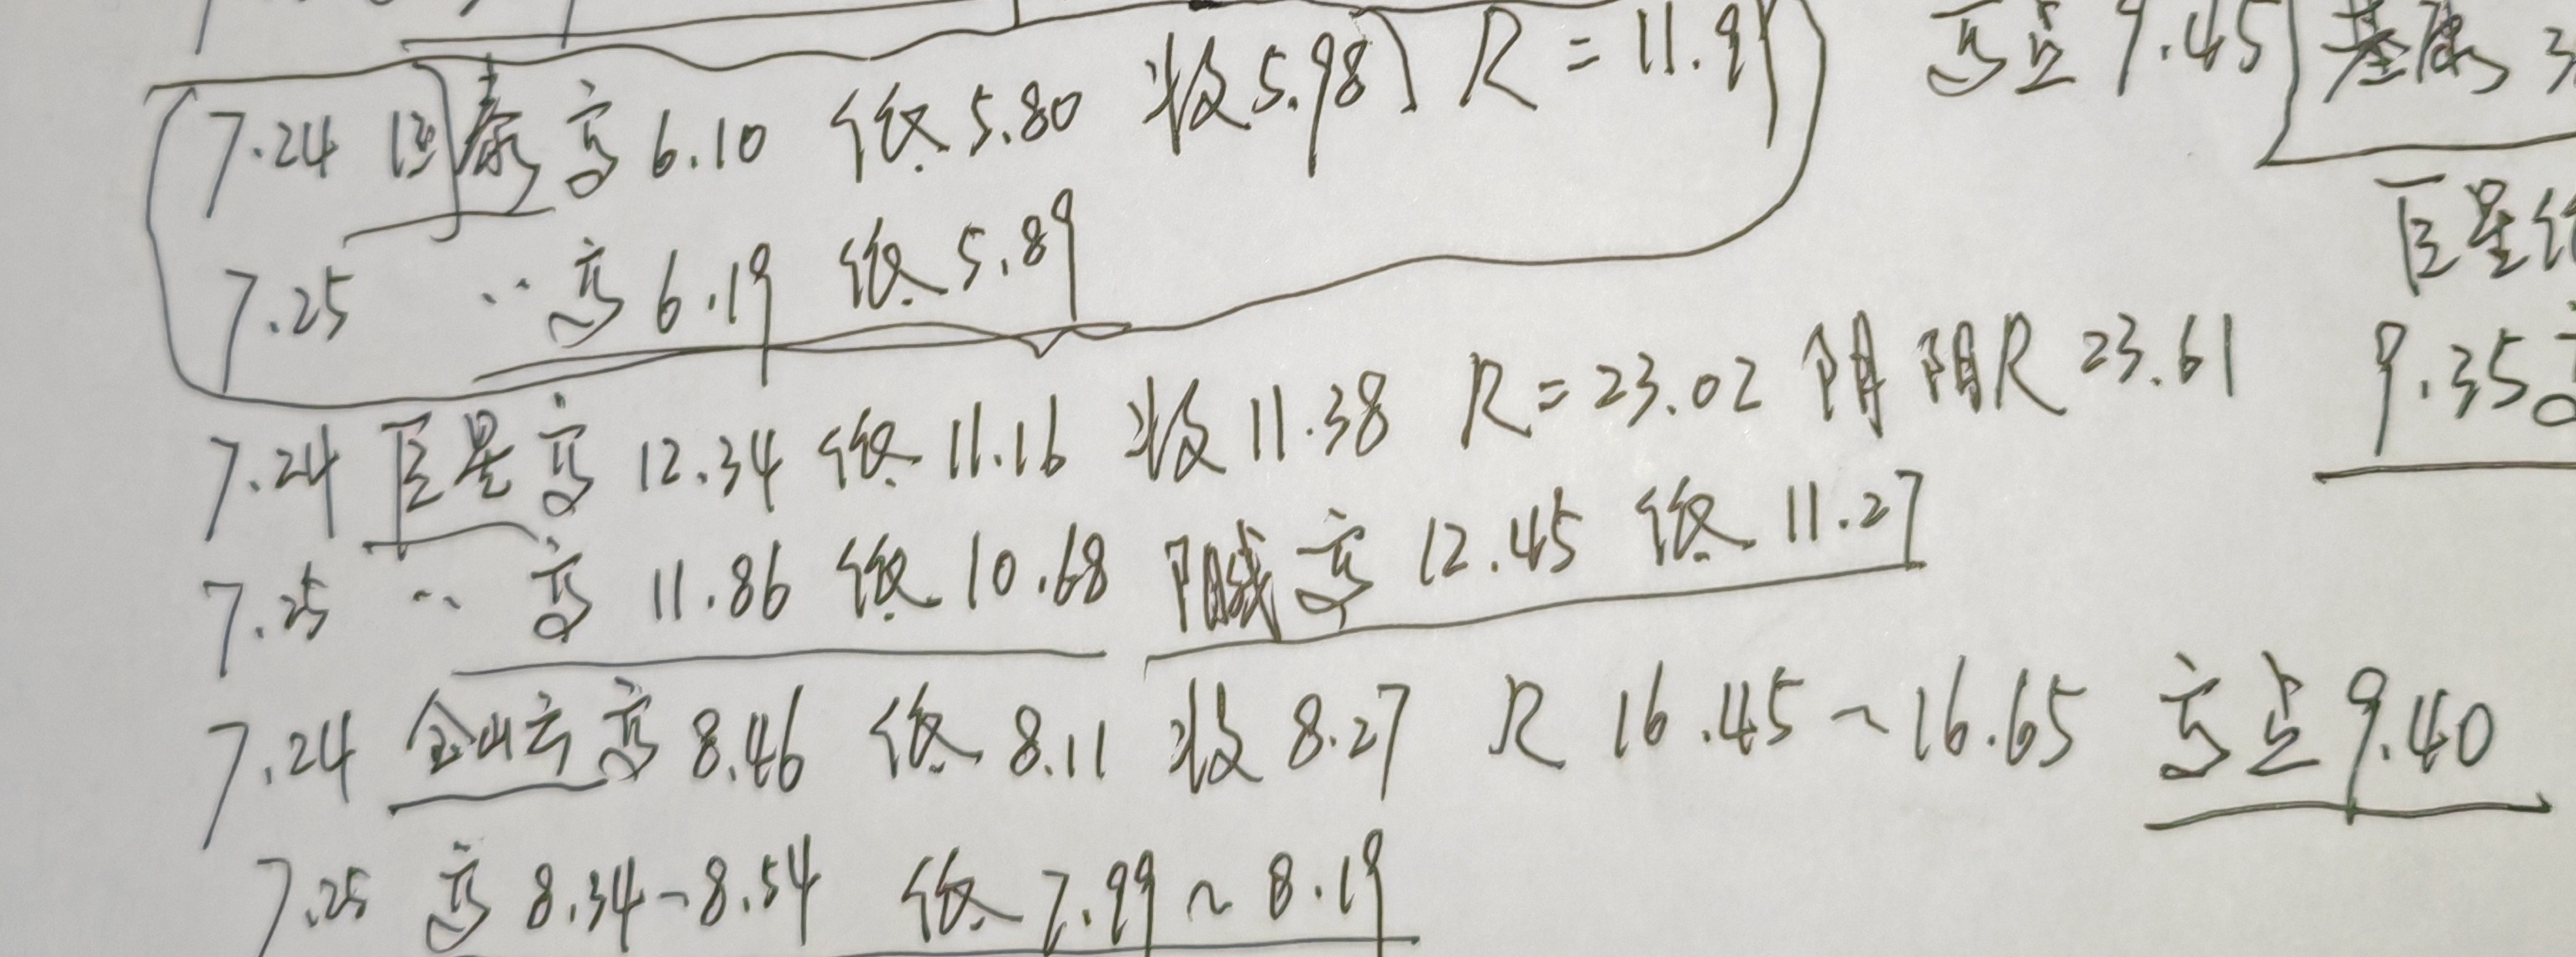 7.24 恒泰 高 6.10 低 5.80 收 5.98 R = 11.99 高点 9.45 基康
7.25 .. 高 6.19 低 5.89
巨星
7.24 巨星 高 12.34 低 11.16 收 11.38 R = 23.02 阴 阳R 23.61 9.35
7.25 .. 高 11.86 低 10.68 阳线 高 12.45 低 11.27
7.24 金山云 高 8.46 低 8.11 收 8.27 R 16.45~16.65 高点 9.40
7.25 高 8.34~8.54 低 7.99~8.19